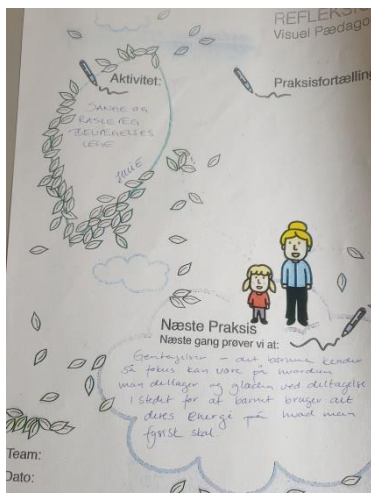 REFLEKSI
Visuel Pædago
Aktivitet:
Praksisfortælling
SANGE OG
RASLEÆG
BEVÆGELSES
LEGE
Næste Praksis
Næste gang prøver vi at:
Gentagelser - det børnene kender
Så fokus kan være på hvordan
man deltager og glæden ved deltagelse
i stedet for at barnet bruger alt
deres energi på hvad man
fysisk skal.
Team:
Dato: